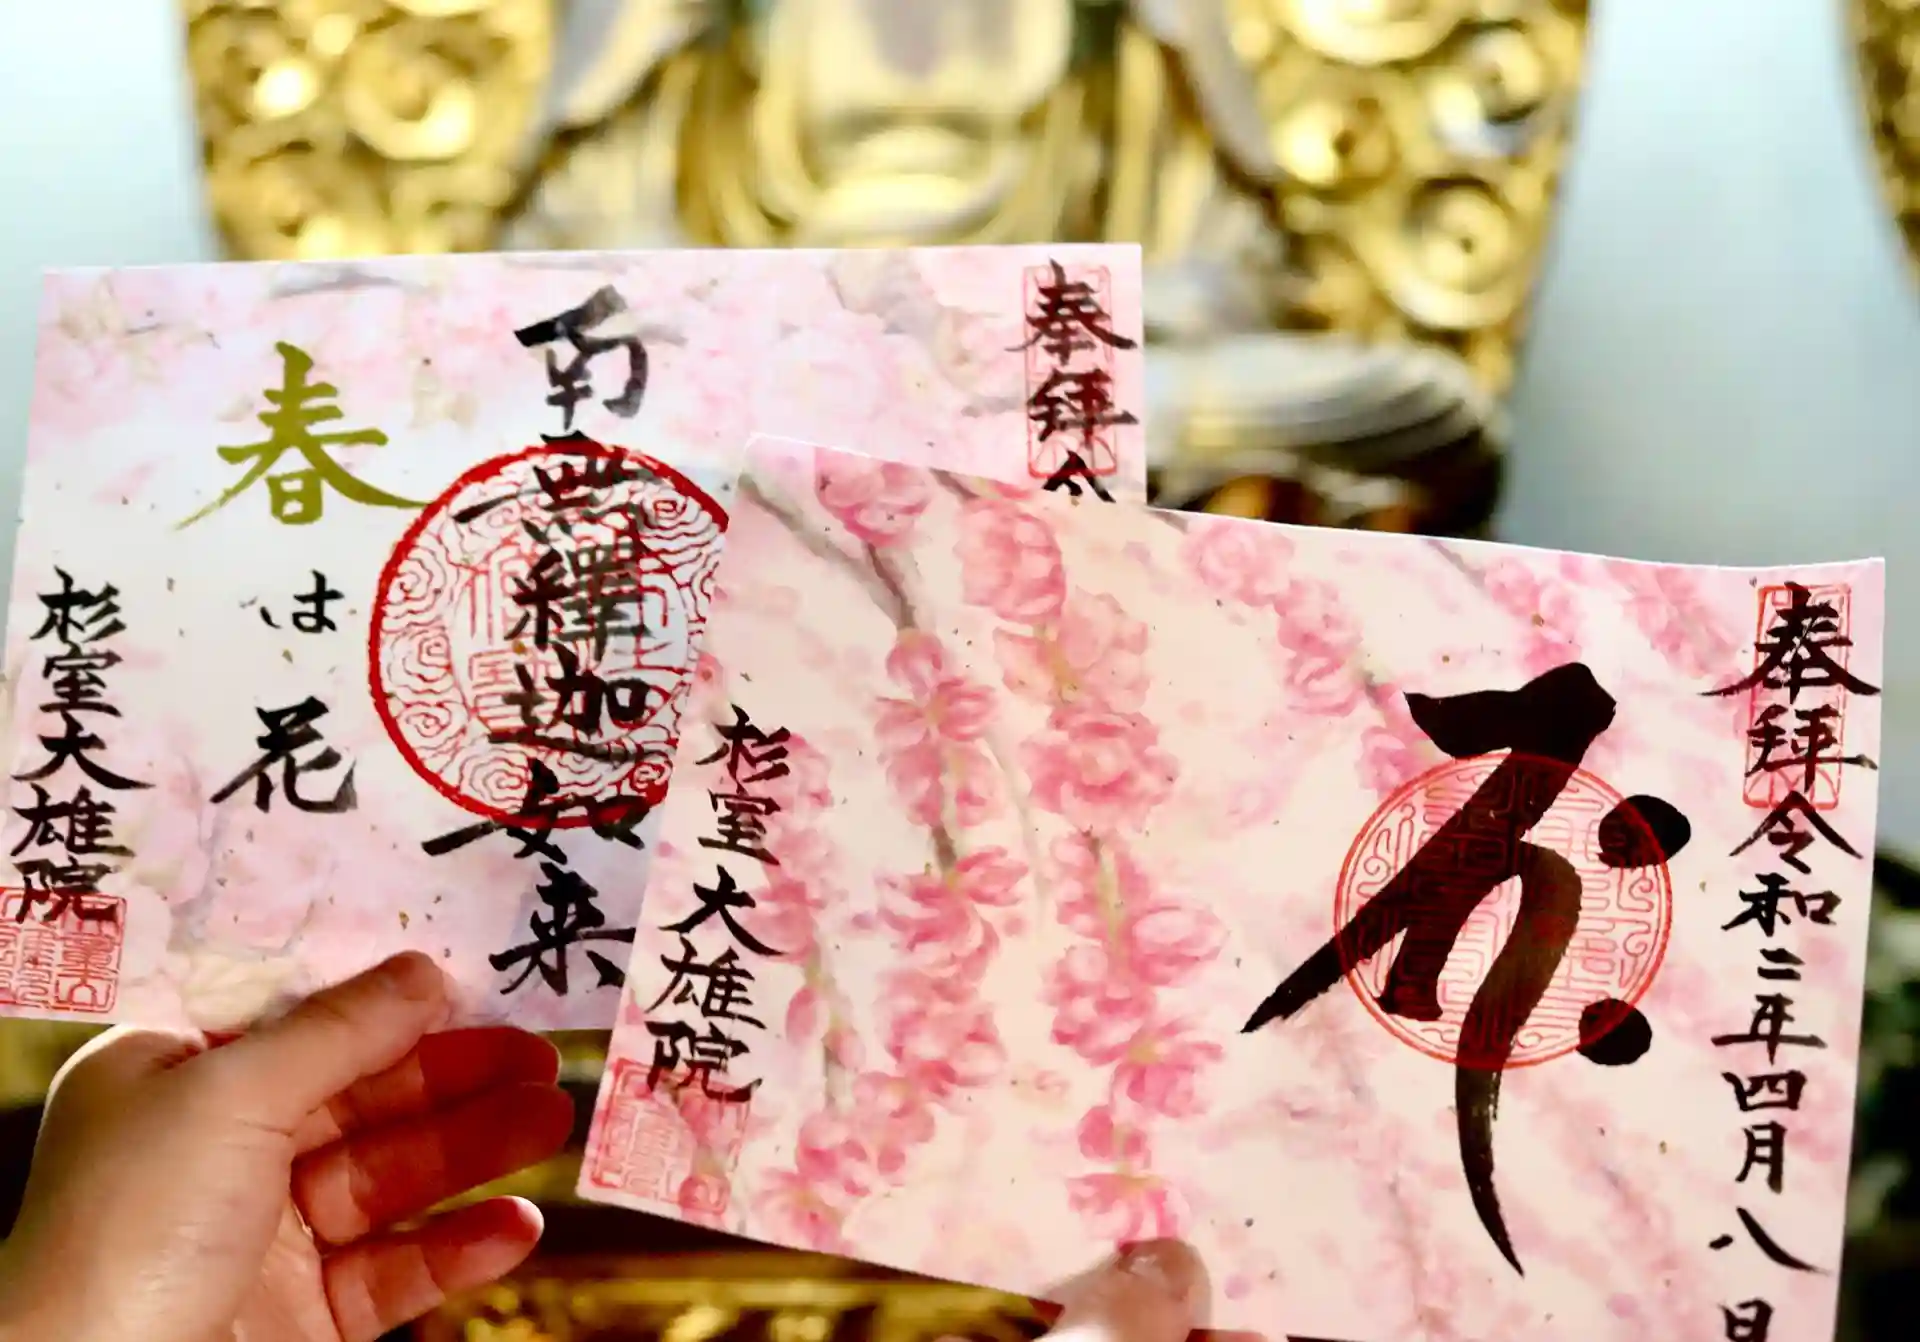 奉拝 令
南無釋迦如来
春は花
杉室大雄院
奉拝 令和二年四月八日
杉室大雄院